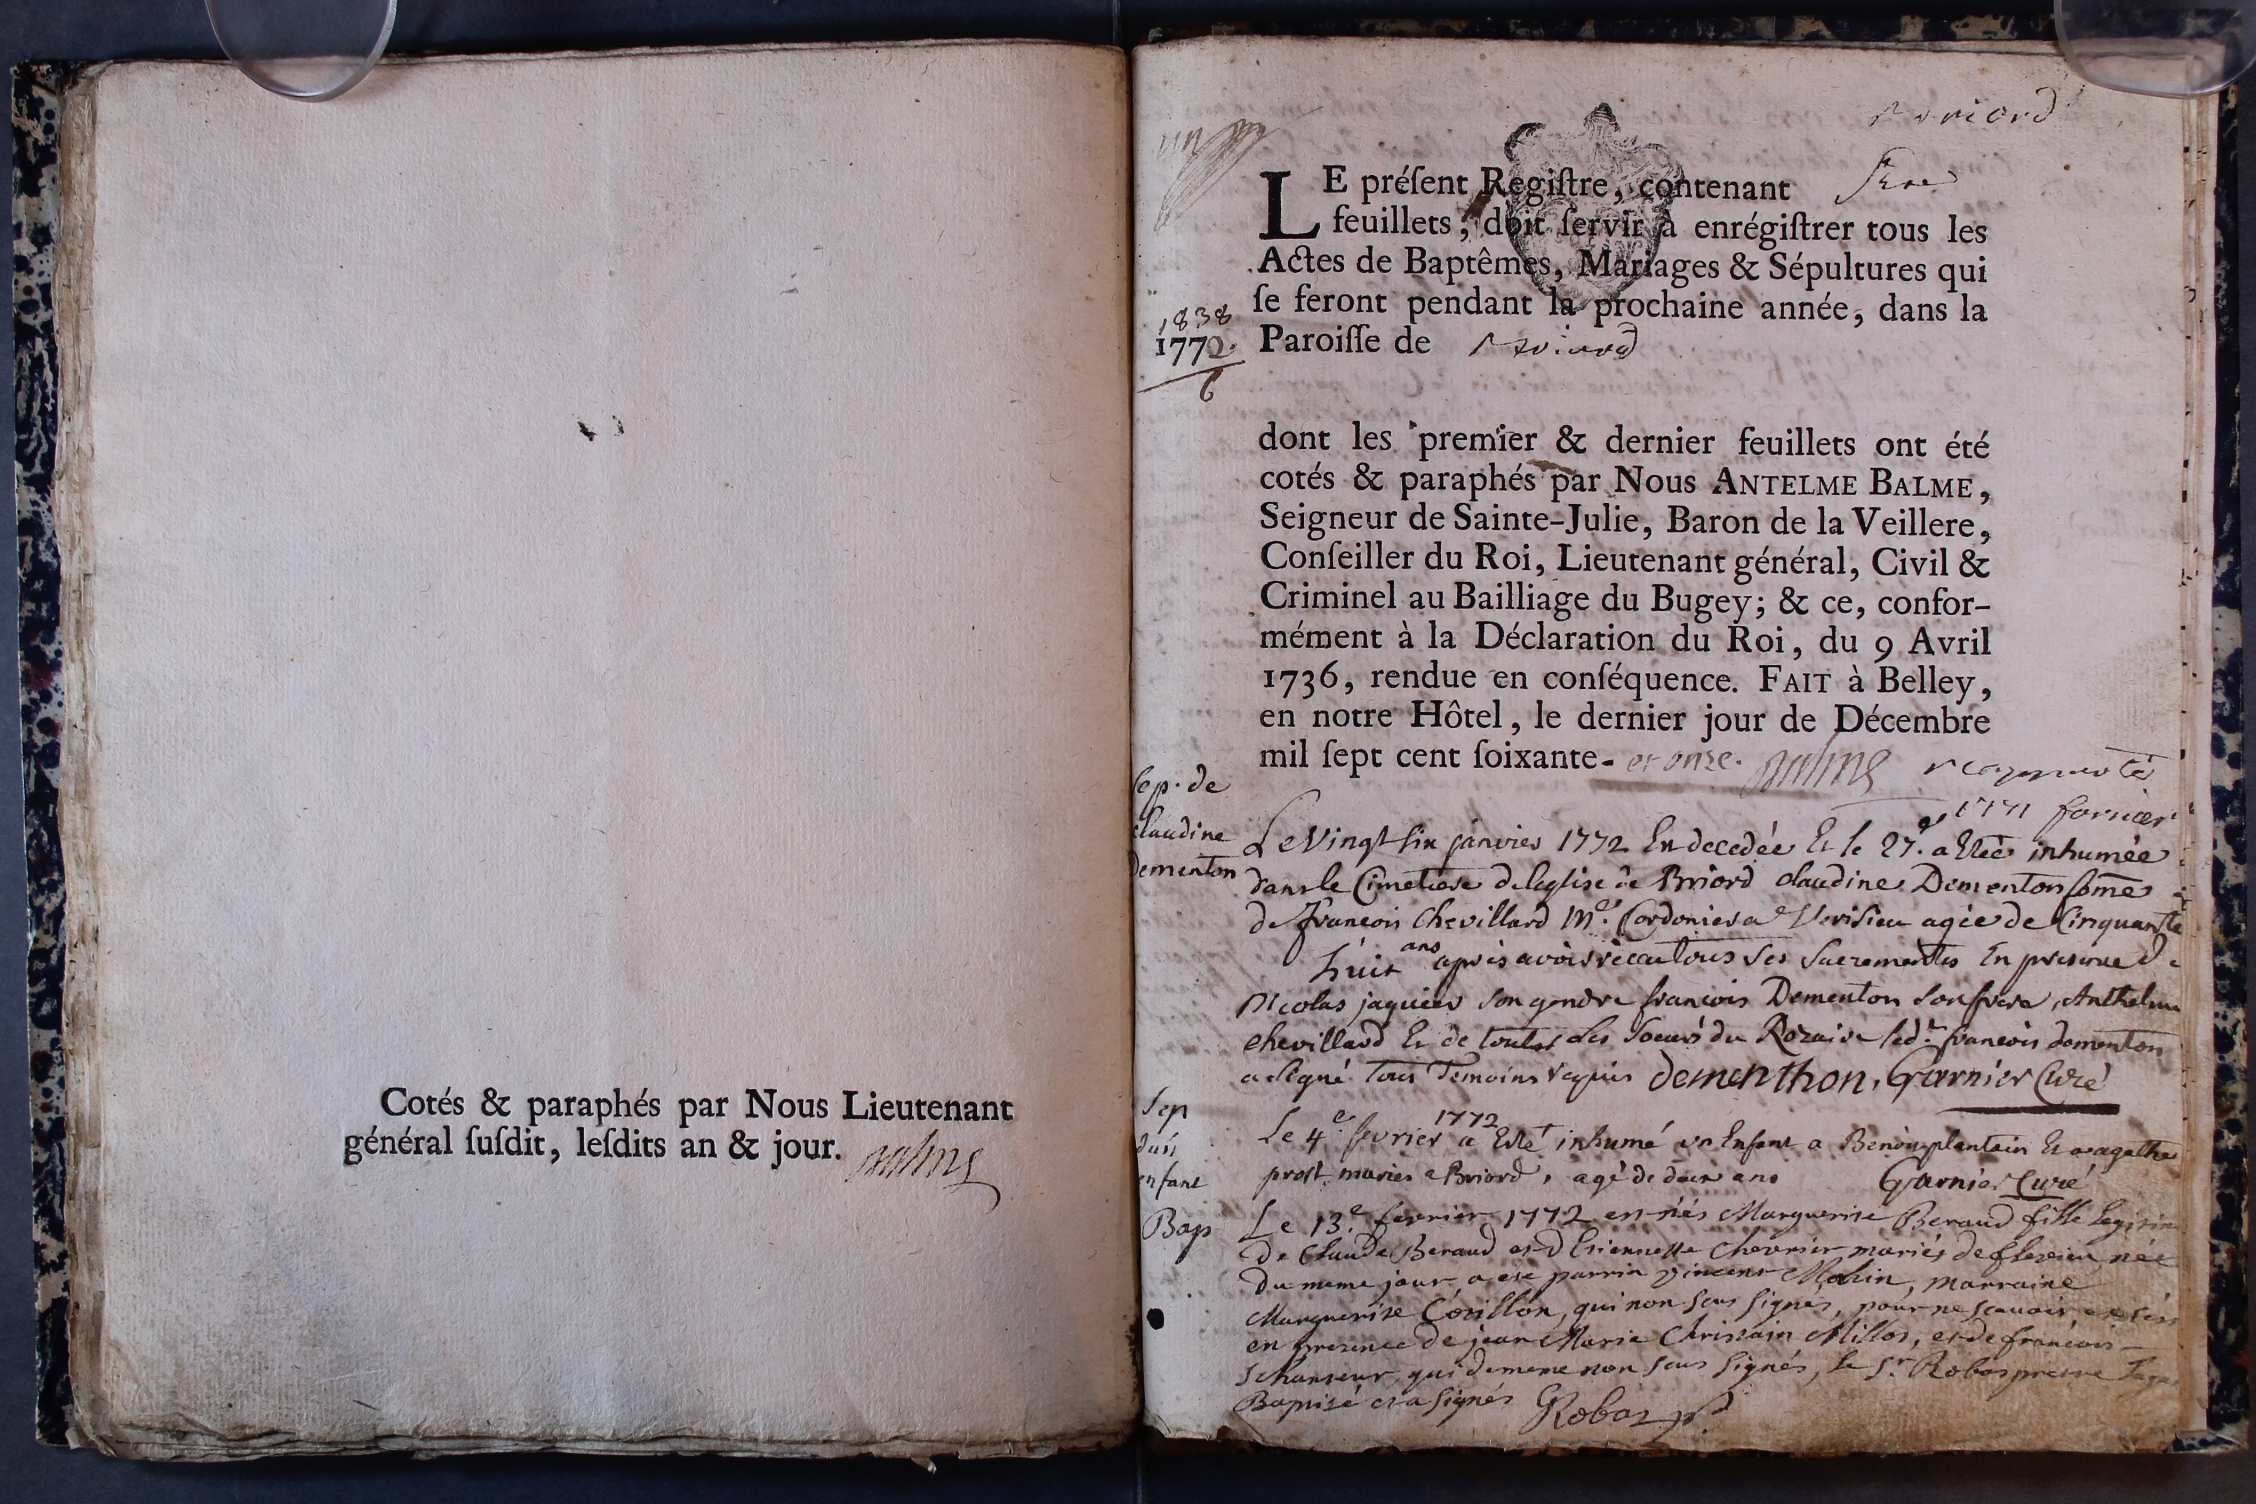 Cotés & paraphés par Nous Lieutenant
général ſuſdit, leſdits an & jour. Balme
un
Briord
LE préſent Regiſtre, contenant
feuillets, doit ſervir à enrégiſtrer tous les
Actes de Baptêmes, Mariages & Sépultures qui
ſe feront pendant la prochaine année, dans la
Paroiſſe de Briord
1838
1772
6
dont les premier & dernier feuillets ont été
cotés & paraphés par Nous ANTELME BALME,
Seigneur de Sainte-Julie, Baron de la Veillere,
Conſeiller du Roi, Lieutenant général, Civil &
Criminel au Bailliage du Bugey; & ce, confor-
mément à la Déclaration du Roi, du 9 Avril
1736, rendue en conſéquence. FAIT à Belley,
en notre Hôtel, le dernier jour de Décembre
mil ſept cent ſoixante- et onze. Balme
1771
Sep. de
claudine
Dementon
Le Vingt six janvier 1772 Est decedée Et le 27.e a Eteé inhumée
dans le Cimetiere de leglise de Briord claudine Dementon fême
de francois Chevillard Me. Cordonier a Verisieu agée de Cinquante
huit ans apres avoir recu tous ses Sacrements En presence de
Nicolas jaquier son gendre francois Dementon son frere, Anthelme
chevillard Et de toutes les soeurs du Rozaire led.t francois dementon
a signé tous Temoins requis dementhon, Garnier Curé
Sep
dun
enfant
Le 4.e fevrier 1772 a Eté inhumé un Enfant a Benoit plantain Et a agathe
prost mariés a Briord, agé de deux ans Garnier Curé
Bap
Le 13.e fevrier 1772 est née Marguerite Beraud fille legitime
de Claude Beraud et d'Etiennette Chevrier mariés de flevieu née
du meme jour a ete parrin vincent Molin, marraine
Marguerite Corillon, qui non sous signés, pour ne scavoir
en presence de jean Marie Christain Millot, et de francois
qui de meme non sous signés, le Sr. Robat pretre
Baptisé et a signés Robat